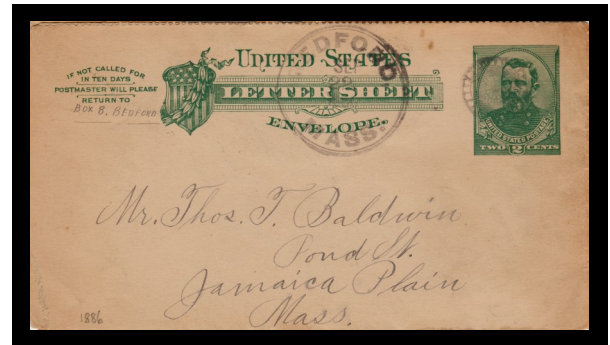 IF NOT CALLED FOR
IN TEN DAYS
POSTMASTER WILL PLEASE
RETURN TO
BOX 8, BEDFORD
UNITED STATES
LETTER SHEET
ENVELOPE.
BEDFORD
MASS.
UNITED STATES POSTAGE
TWO 2 CENTS
Mr. Thos. T. Baldwin
Pond St.
Jamaica Plain
Mass.
1886